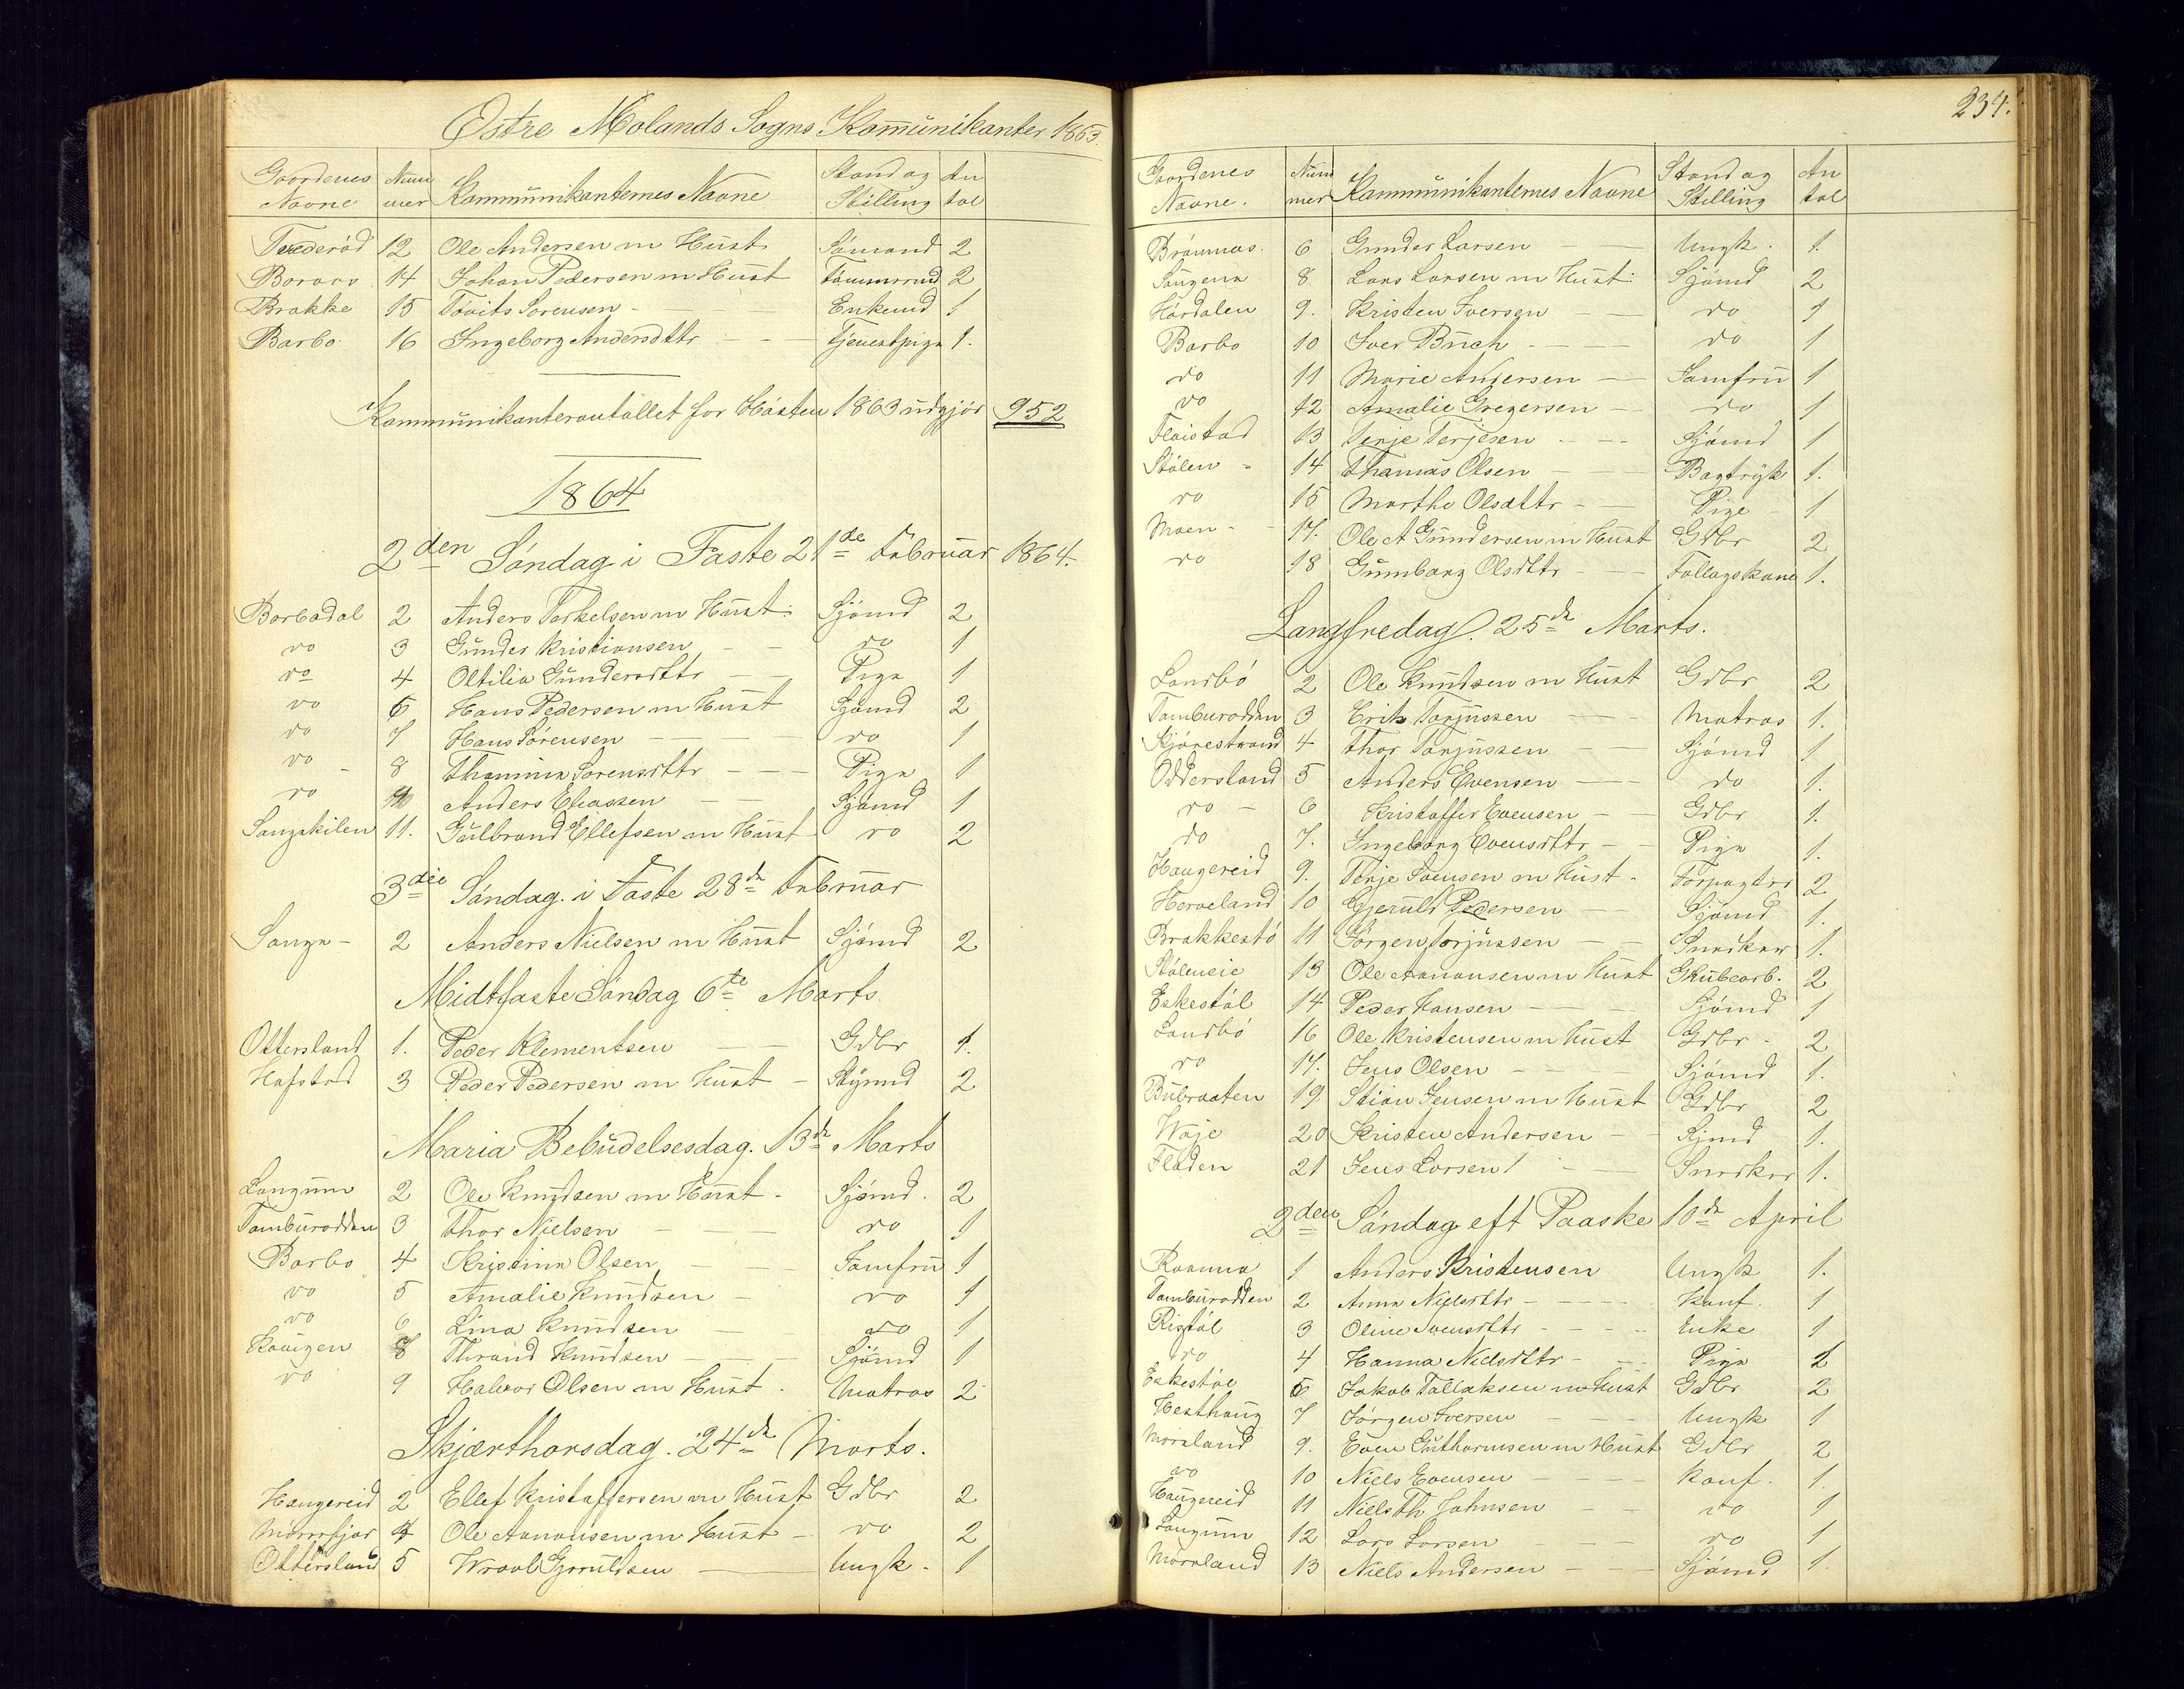 Østre Molands Sogns Kommunikanter 1863.
Gaardenes Navne Nummer Kommunikanternes Navne Stand og Stilling Antal
12 Ole Andersen m Hust Sömand 2
Boraas 14 Johan Pedersen m Hust Tömmrmd 2
Brakke 15 Tövits Sörensen - Enkemd 1
Barbo 16 Ingeborg Andersdttr - - Tjenestpige 1.
Kommunikanterantallet for Hösten 1863 udgjör 952
1864
2den Søndag i Faste 21de Februar 1864.
Barbodal 2 Anders Terkelsen m Hust: Sjömd 2
do 3 Gunder Kristiansen - - do 1
do 4 Oltilia Gundersdttr - - Pige 1
do 6 Hans Pedersen m Hust Sjömd 2
do 7 Hans Sörensen - - - - do 1
do - 8 Thomine Sorensdttr - - - Pige 1
do Anders Eliassen - - Sjömd 1
Songekilen 11. Gulbrand Ellefsen m Hust do 2
3die Søndag i Faste 28de Februar
Songe - 2 Anders Nielsen m Hust Sjömd 2
Midtfaste Søndag 6te Marts
Ottersland 1. Peder Klementsen - - Gdbr 1.
Hafstad 3 Peder Pedersen m Hust - Stÿrmd 2
Maria Bebudelsesdag. 13de Marts
Langum 2 Ole Knudsen m Hust - Sjömd. 2
Tamburodden 3 Thor Nielsen - - do 1
Barbo 4 Kristine Olsen - - Jomfru 1
do 5 Amalie Knudsen - do 1
do 6 Lina Knudsen - do 1
Kouigen 8 Thrond Knudsen - - Sjömd 1
do 9 Halvor Olsen m Hust - Matros 2
Skjærthorsdag. 24de Marts.
Haugereid 2 Ellef Kristoffersen m Hust Gdbr 2
Mörefjær 4 Ole Aanonsen m Hust - do 2
Ottersland 5 Wraal Gjeruldsen - Ungk - 1
234.
Gaardenes Navne. Nummer Kommunikanternes Navne Stand og Stilling Antal
Bröunnas. 6 Gunder Larsen - - Ungk. 1.
Saugene 8 Lars Larsen m Hust: Sjömd 2
Hördalen 9. Kristen Iversen - - do 1
Barbo 10 Iver Buch - - - - do 1
do 11 Marie Andersen - - Jomfru 1
do 12 Amalie Gregersen - do 1
Flaistad 13 Terje Terjesen - - - Sjömd 1
Stölen - 14 Thomas Olsen - - Bagtrÿk 1.
do 15 Marthe Olsdttr - - Pige 1
Moen - - 17. Ole A Gundersen m Hust Gdbr 2
do 18 Gunborg Olsdttr - - Follagskone 1.
Langfredag. 25de Marts.
Landbö 2 Ole Knudsen m Hust Gdbr 2
Tamburodden 3 Erik Torjussen - - Matros 1.
Kjörestrand 4 Thor Torjussen - - Sjömd 1
Oddersland 5 Anders Evensen - - do 1.
do - 6 Kristoffer Evensen - - Gdbr 1.
do 7. Ingeborg Evensdttr - - Pige 1.
Haugereid 9. Terje Svensen m Hust - Forpagter 2
Herveland 10 Gjeruld Pedersen - - Sjömd 1.
Brakkestö 11 Jörgen Torjussen - - Snedker 1.
Stöleneie 13 Ole Aanonsen m Hust Grubearb. 2
Eskestöl 14 Peder Hansen - - Sjömd 1
Landbö 16 Ole Kristensen m Hust Gdbr - 2
do 17. Jens Olsen - - - Sjömd 1.
Bubraaten 19. Stian Jensen m Hust Gdbr 2
Waje 20 Kristen Andersen - - Sjmd 1.
Fladen 21 Jens Larsen - - Snedker 1.
2den Søndag eft Paaske 10de April
Raanna 1 Anders Kristensen Ungk 1.
Tamburodden 2 Anna Nielsdttr - - - - Konf. 1
Ristöl 3 Oline Svensdttr - - - - Enke 1
do 4 Hanna Nielsdttr - - Pige 1
Eskestöl 6 Jakob Tallaksen m Hust Gdbr 2
Hesthaug 7 Jörgen Iversen - - Ungk 1
Morland 9. Even Guthormsen m Hust Gdbr 2
do 10 Niels Evensen - - - Konf. 1.
Haugereid 11 Niels Th. Johnsen - - do 1
Langum 12 Lars Larsen - - do 1
Morland 13 Niels Andersen - - - Sjömd 1.